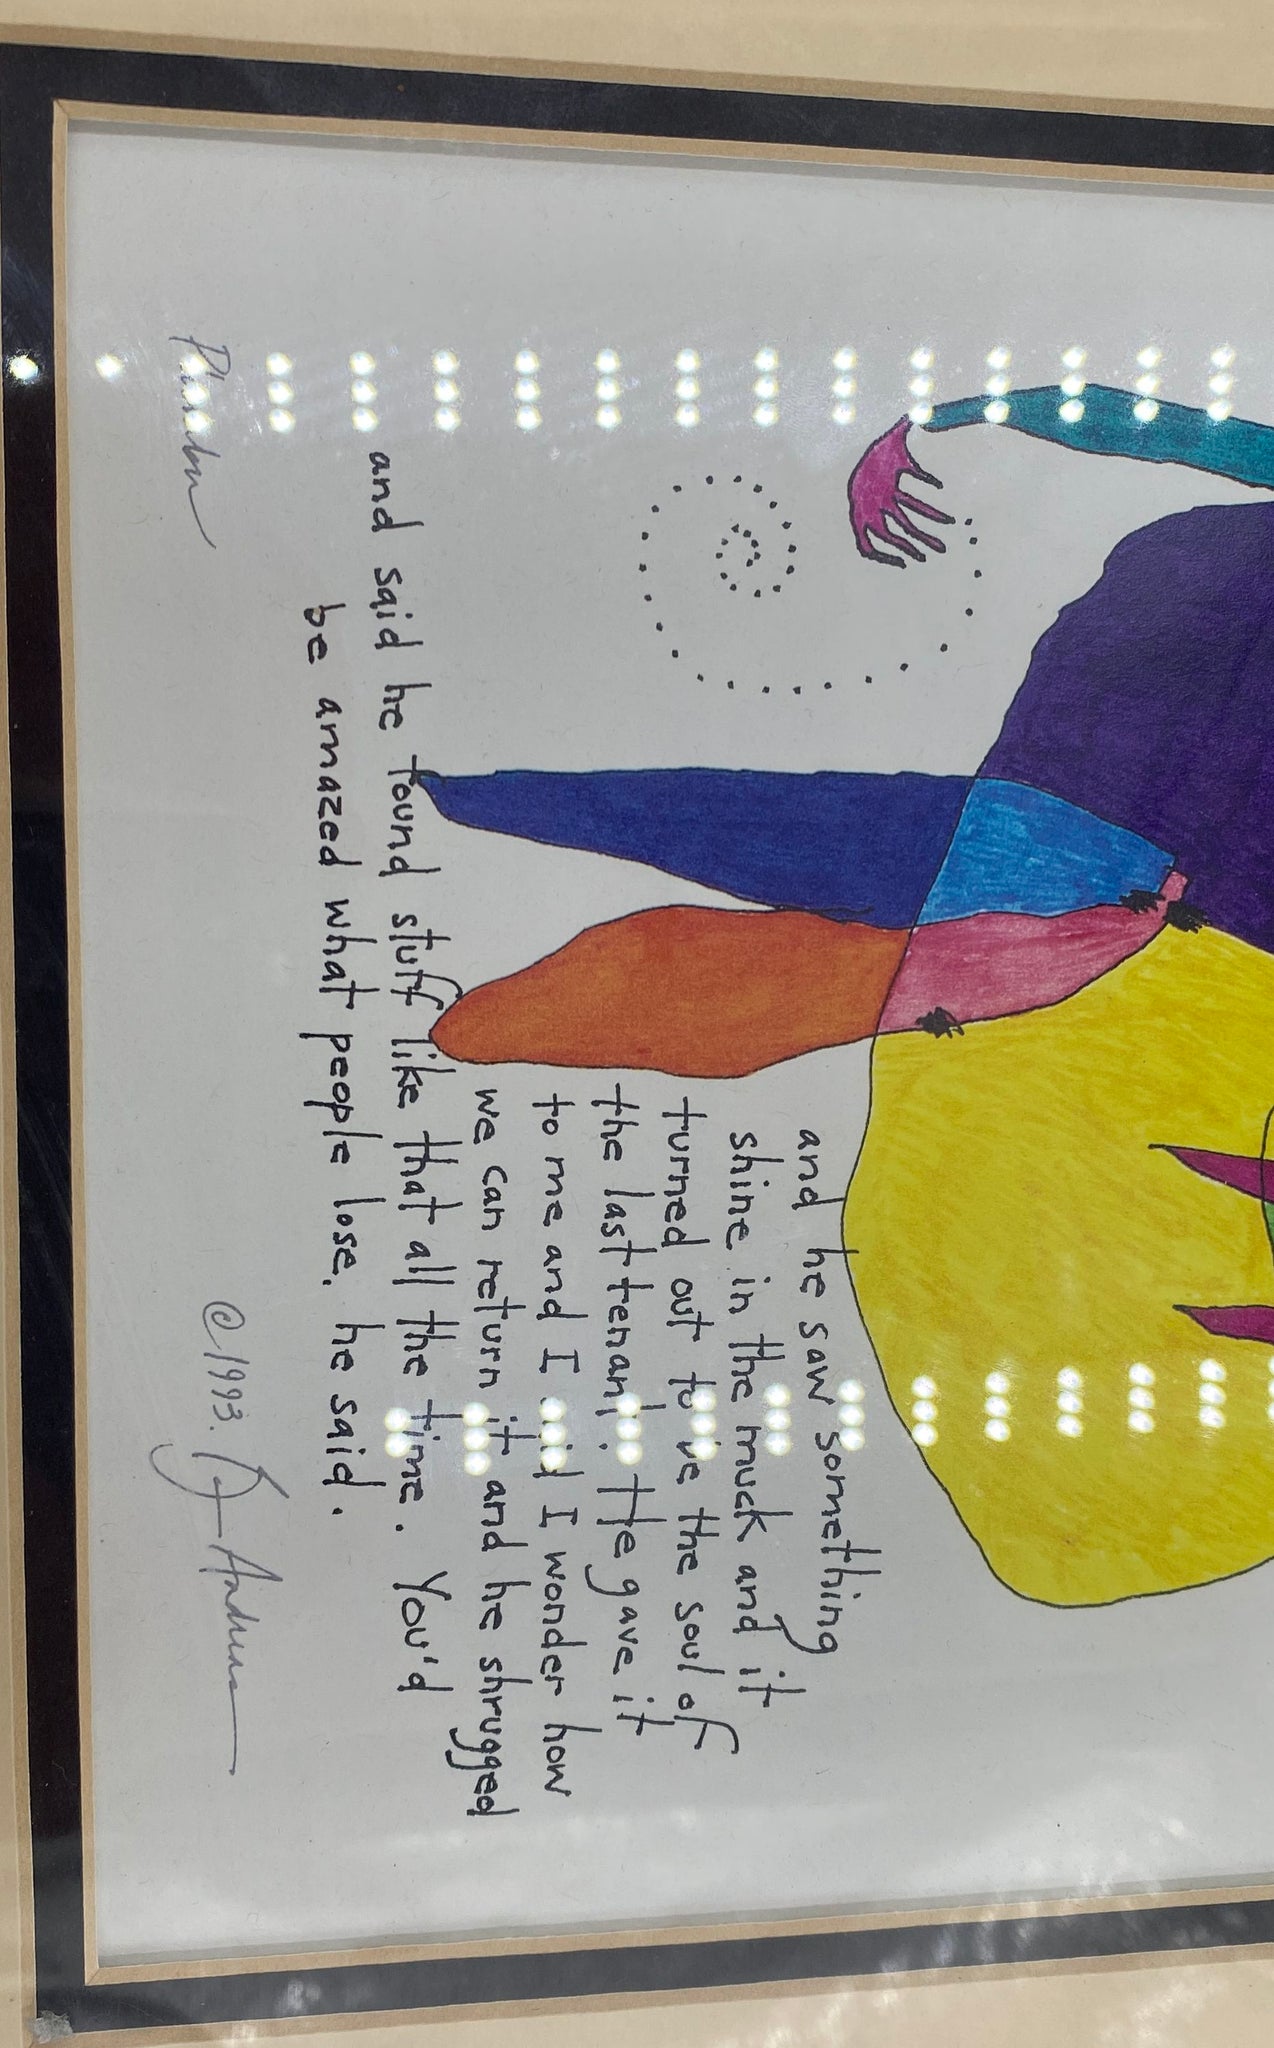 and he saw something
shine in the muck and it
turned out to be the soul of
the last tenant. He gave it
to me and I said I wonder how
we can return it and he shrugged
and said he found stuff like that all the time. You'd
be amazed what people lose, he said.
Plumber
©1993. Andreas